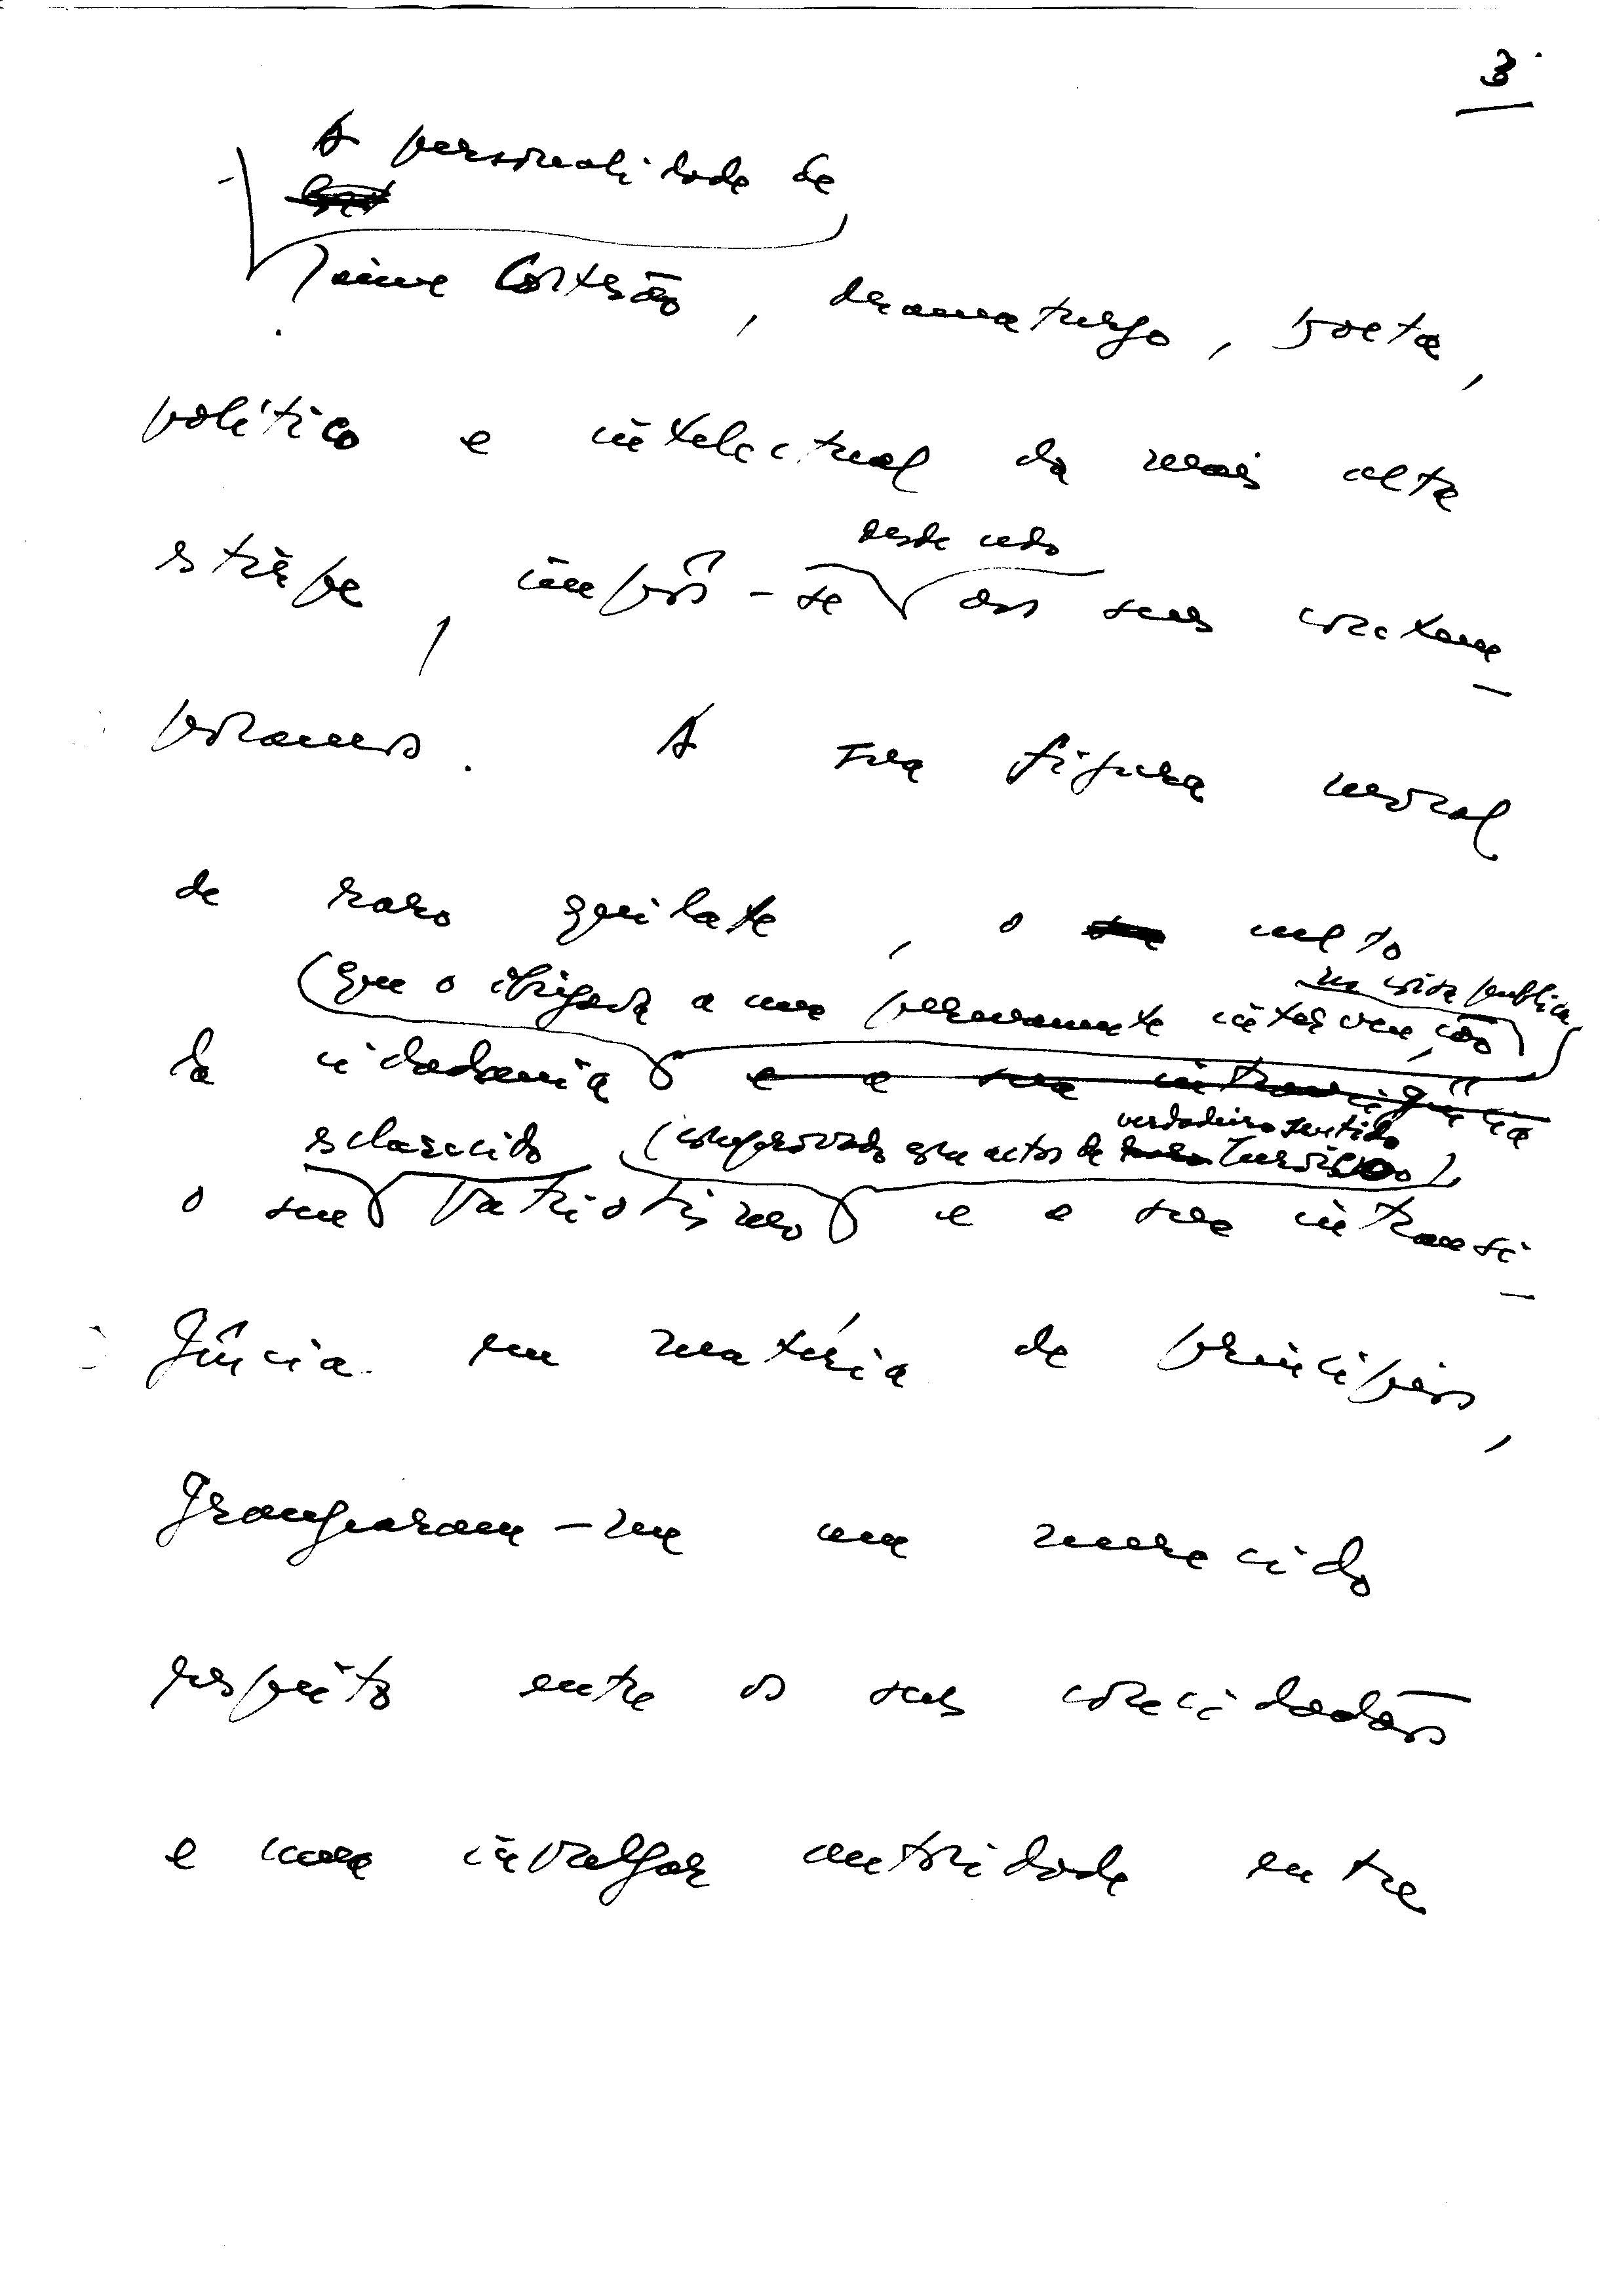 3
A personalidade de
Jaime Cortesão, dramaturgo, poeta,
político e intelectual da mais alta
desde cedo
estirpe, impôs-se aos seus contem-
porâneos. A sua figura moral
de raro quilate, o culto
na vida pública
(que o obrigava a uma permanente intervenção
da cidadania e a sua intransigência
verdadeiro sentido
esclarecido (comprovado em actos de heroísmo),
o seu patriotismo e a sua intransi-
gência em matéria de princípios,
Grangearam-lhe um merecido
respeito entre os seus concidadãos
e uma invulgar autoridade entre